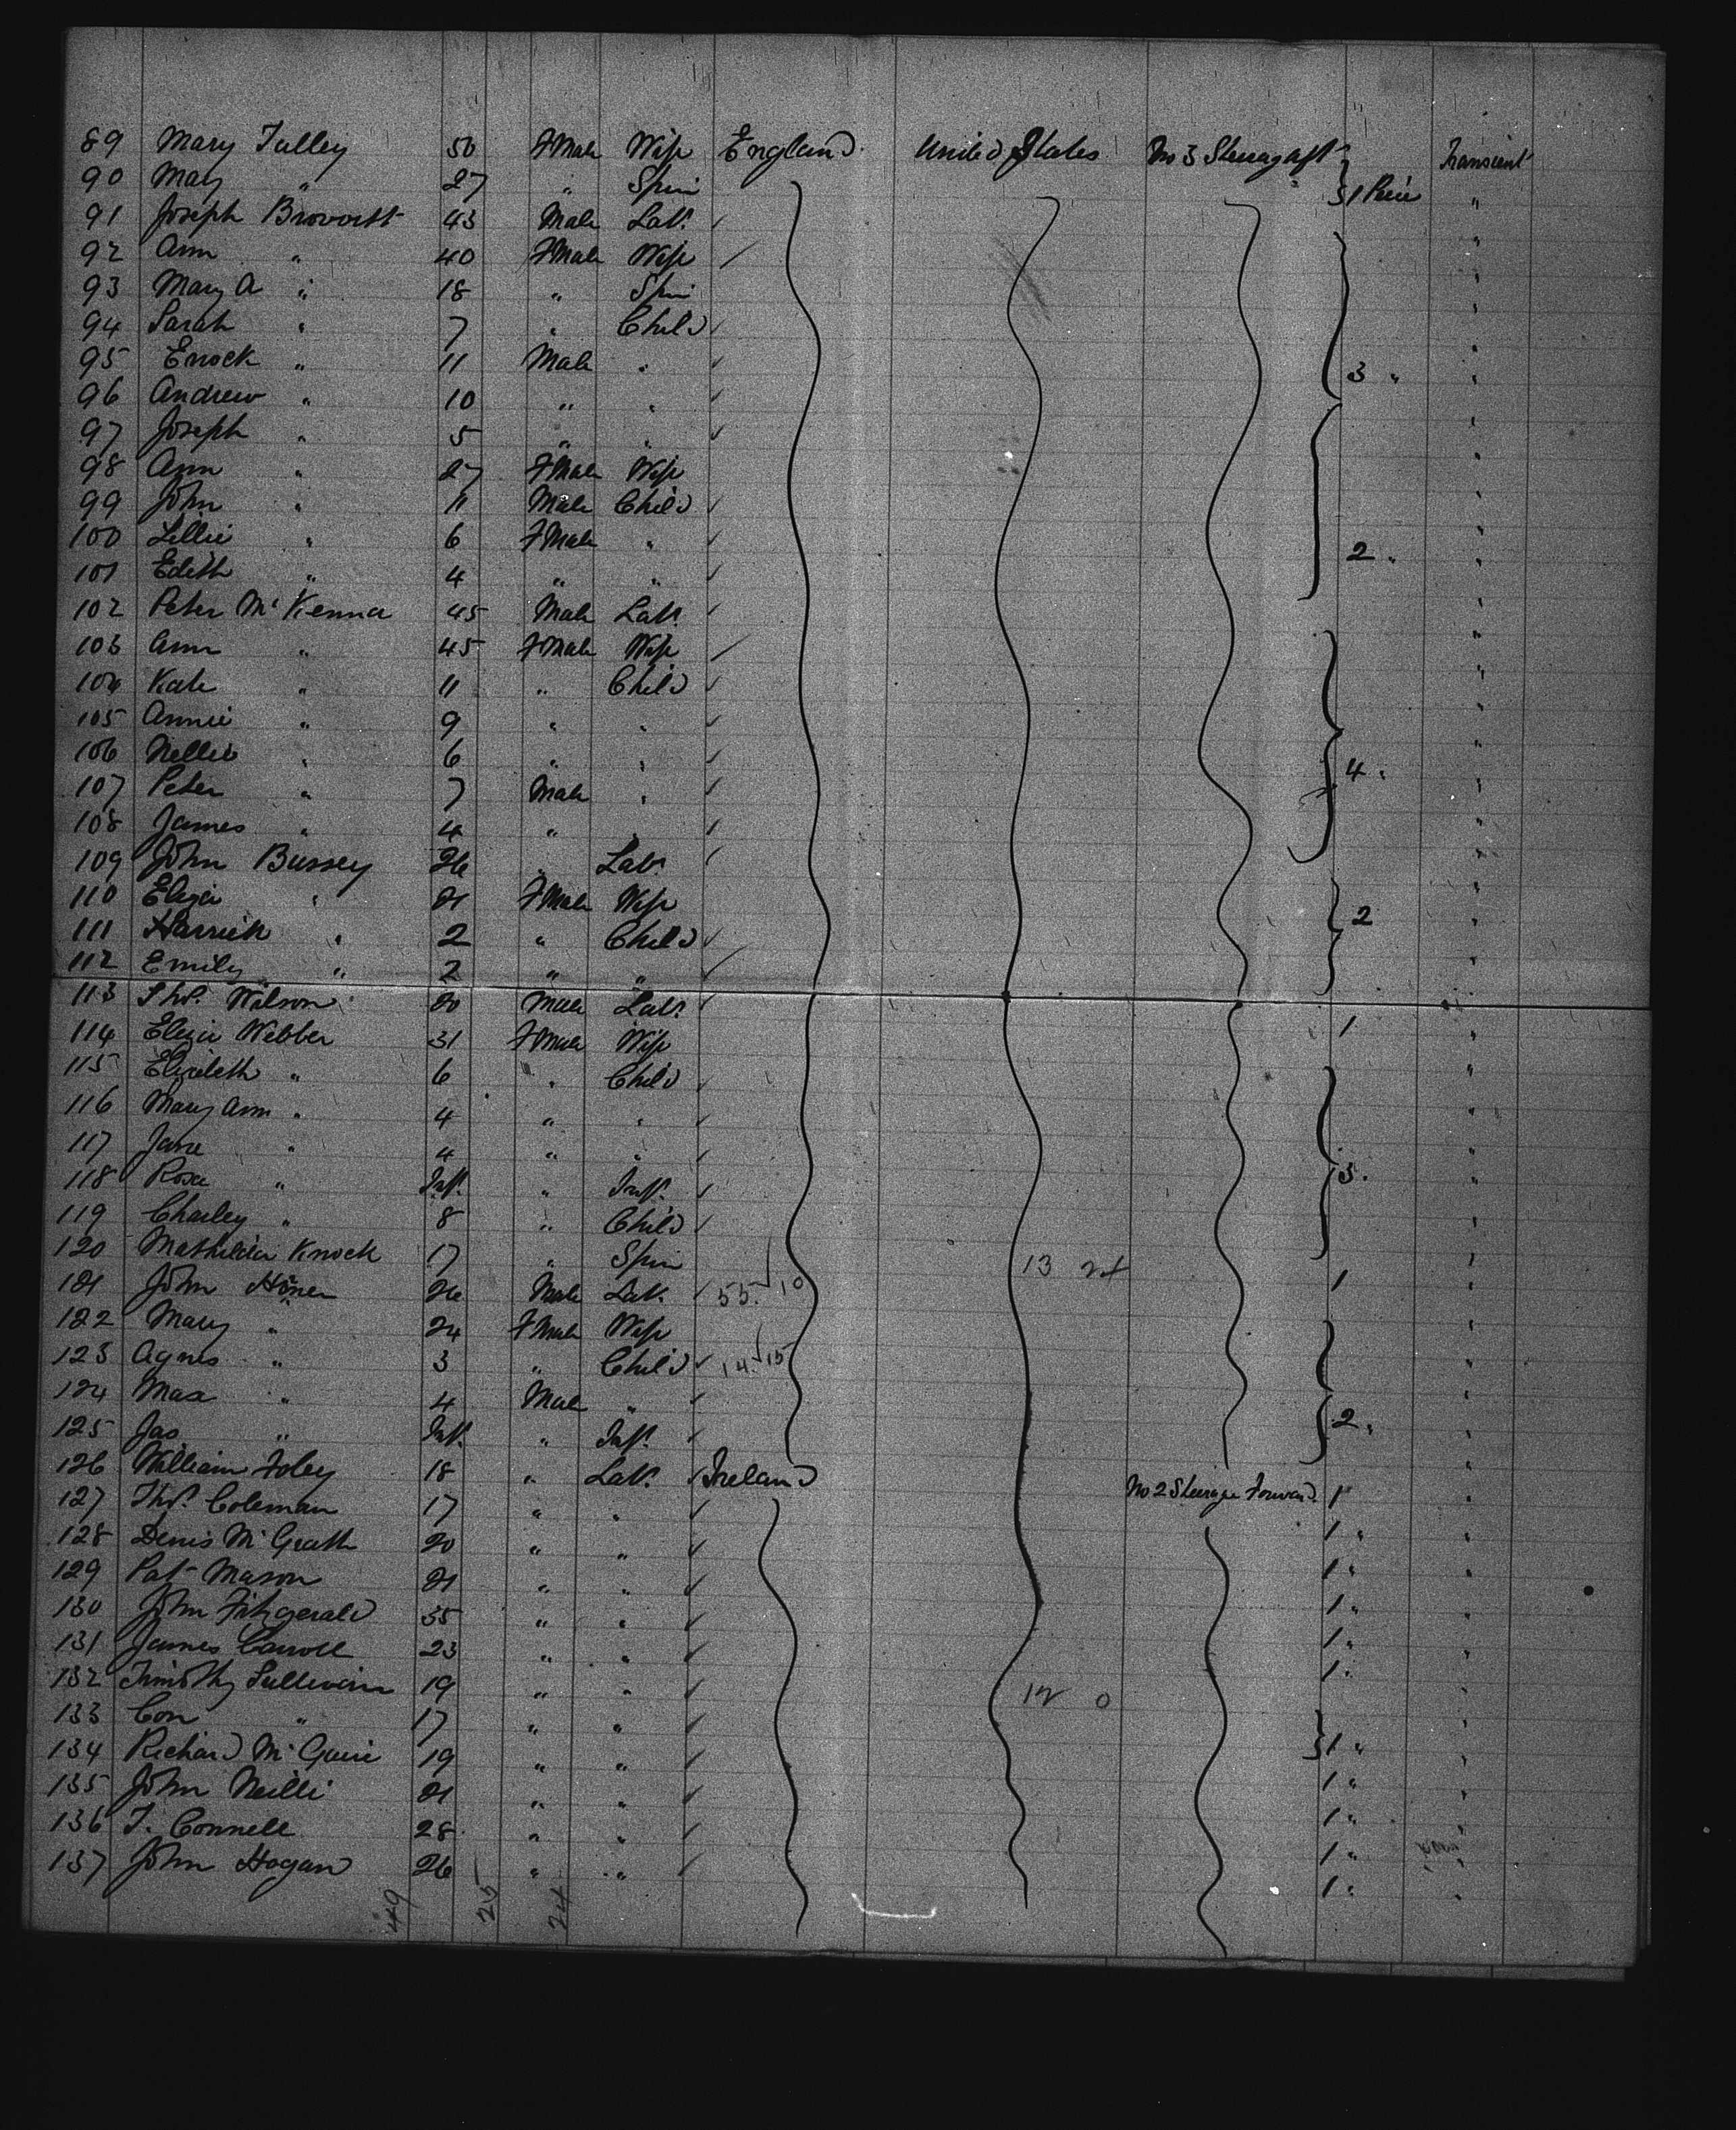 89 Mary Tulley 50 FMale Wife England United States No 3 Steerage aft Transient
90 Mary " 27 " Spin 1 Piece "
91 Joseph 43 Male Labr "
92 Ann " 40 FMale Wife "
93 Mary A " 18 " Spin "
94 Sarah " 7 " Child "
95 Enock " 11 Male " 3 " "
96 Andrew " 10 " " "
97 Joseph " 5 " " "
98 Ann " 27 FMale Wife "
99 John " 11 Male Child "
100 Lillie " 6 FMale " 2 " "
101 Edith " 4 " " "
102 Peter McKenna 45 Male Labr "
103 Ann " 45 FMale Wife "
104 Kate " 11 " Child "
105 Annie " 9 " " "
106 Nellie " 6 " " 4 " "
107 Peter " 7 Male " "
108 James " 4 " " "
109 John Bussey 26 " Labr "
110 Eliza " 21 FMale Wife 2 "
111 " 2 " Child "
112 Emily " 2 " " "
113 Thos. Wilson 20 Male Labr 1 "
114 Eliza Webber 31 FMale Wife "
115 Elizabeth " 6 " Child "
116 Mary Ann " 4 " " "
117 Jane " 4 " " 3 "
118 Rosa " Inft. " Inft. "
119 Charley " 8 " Child "
120 Mathilda Knock 17 " Spin 13 24 "
121 John 26 Male Labr 55 10 1 "
122 Mary " 24 FMale Wife "
123 Agnes " 3 " Child 14 15 "
124 Max " 4 Male " 2 " "
125 Jas " Inft. " Inft. "
126 William Foley 18 " Labr Ireland No 2 Steerage Forward 1 "
127 Thos. Coleman 17 " " 1 " "
128 Denis McGrath 20 " " 1 " "
129 Pat Mason 21 " " 1 " "
130 John Fitzgerald 35 " " 1 " "
131 James Carroll 23 " " 1 " "
132 Timothy Sullivan 19 " " 12 0 "
133 Con " 17 " " 1 " "
134 Richard McGuire 19 " " 1 " "
135 John Neilli 21 " " 1 " "
136 T. Connell 28 " " 1 " "
137 John Hogan 26 " " 1 " "
49 25 24